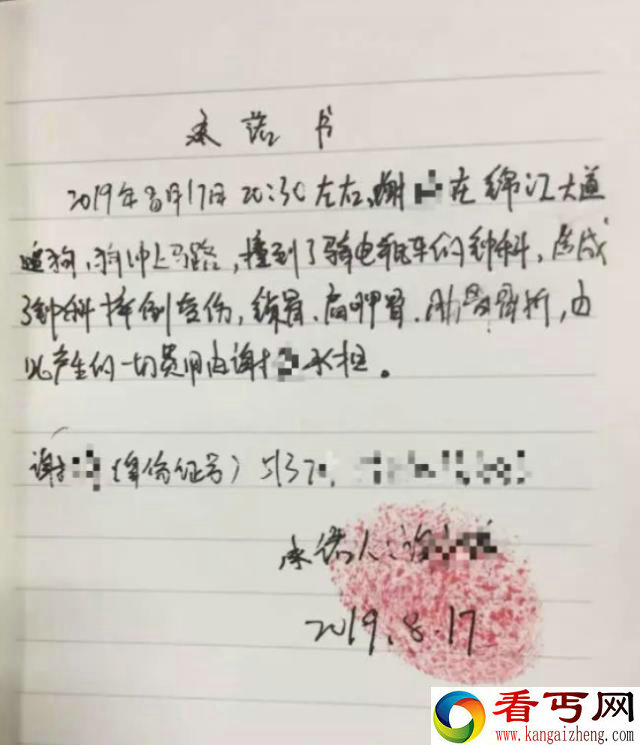 承诺书
2019年8月17日 20:30左右,谢 在绵江大道
遛狗,狗冲上马路,撞到了骑电瓶车的钟科,造成
了钟科摔倒受伤,锁骨、肩胛骨、肋骨骨折,由
此产生的一切费用由谢 承担。
谢 (身份证号)5137
承诺人:谢
2019.8.17
看丐网
www.kangaizheng.com